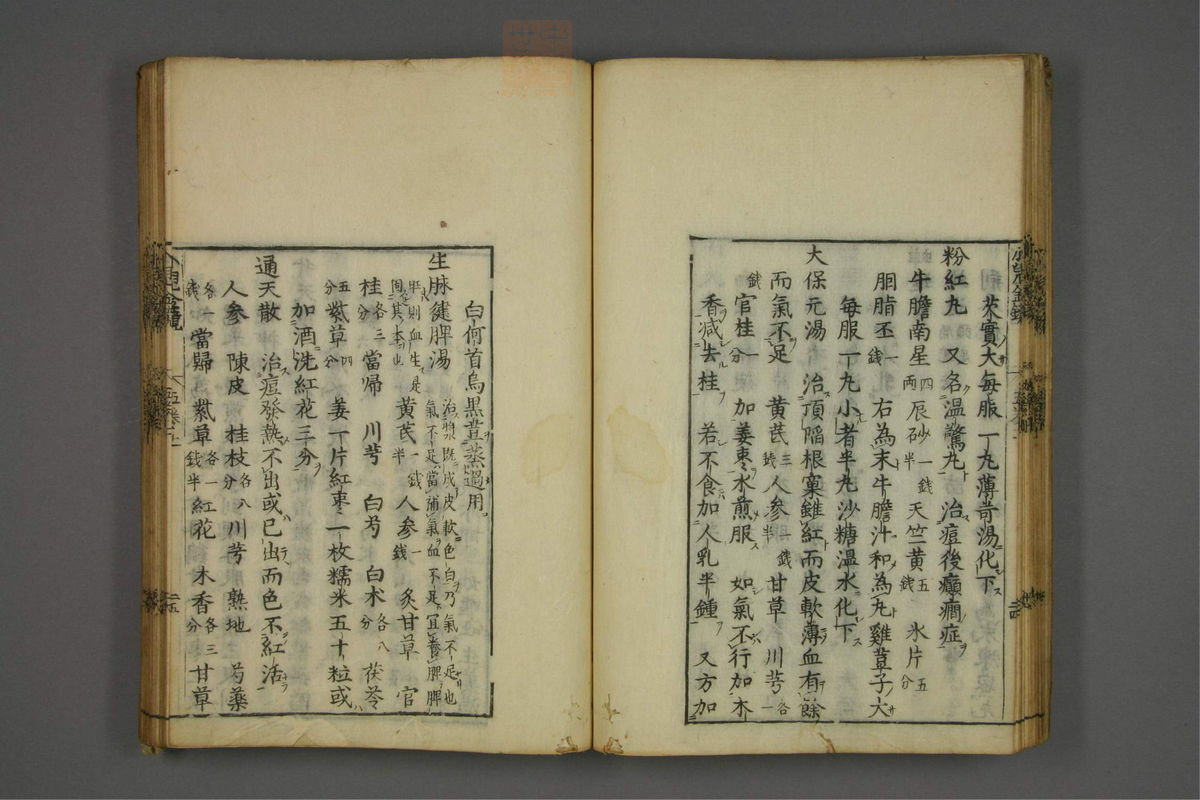 芡實大每服一丸薄荷湯化下
粉紅丸 又名溫驚丸 治痘後癲癇症
牛膽南星四兩 辰砂一錢半 天竺黄五錢 氷片五分
胭脂丕一錢 右為末牛膽汁和為丸雞荳子大
每服一丸小者半丸沙糖溫水化下
大保元湯 治頂陷根窠雖紅而皮軟薄血有餘
而氣不足 黄芪三錢 人參一錢半 甘草 川芎各一錢
官桂一分 加姜枣水煎服 如氣不行加木
香减去桂 若不食加人乳半鍾 又方加
白何首烏黒荳蒸過用
生脉健脾湯 治漿既成皮軟色白乃氣不足也氣不足當補氣血不足宜養脾脾
旺則血生是固其本也 黄芪一錢半 人參一錢 炙甘草 官
桂各三分 當帰 川芎 白芍 白朮各八分 茯苓
五分 紫草四分 姜一片紅枣一枚糯米五十粒或
加酒洗紅花三分
通天散 治痘發熱不出或已出而色不紅活
人參 陳皮 桂枝各八分 川芎 熟地 芍薬
各一錢 當歸 紫草各一錢半 紅花 木香各三分 甘草